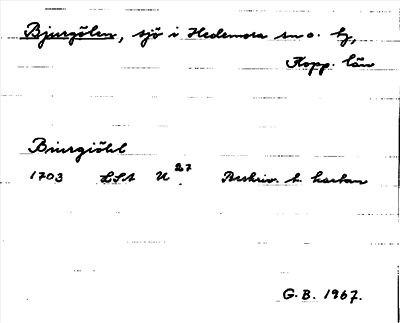 Bjurgölen, sjö i Hedemora sn o. tg,
Kopp. län
Biurgiöhl
1703 LSA U 27 Beskriv. t. kartan
G.B. 1967.